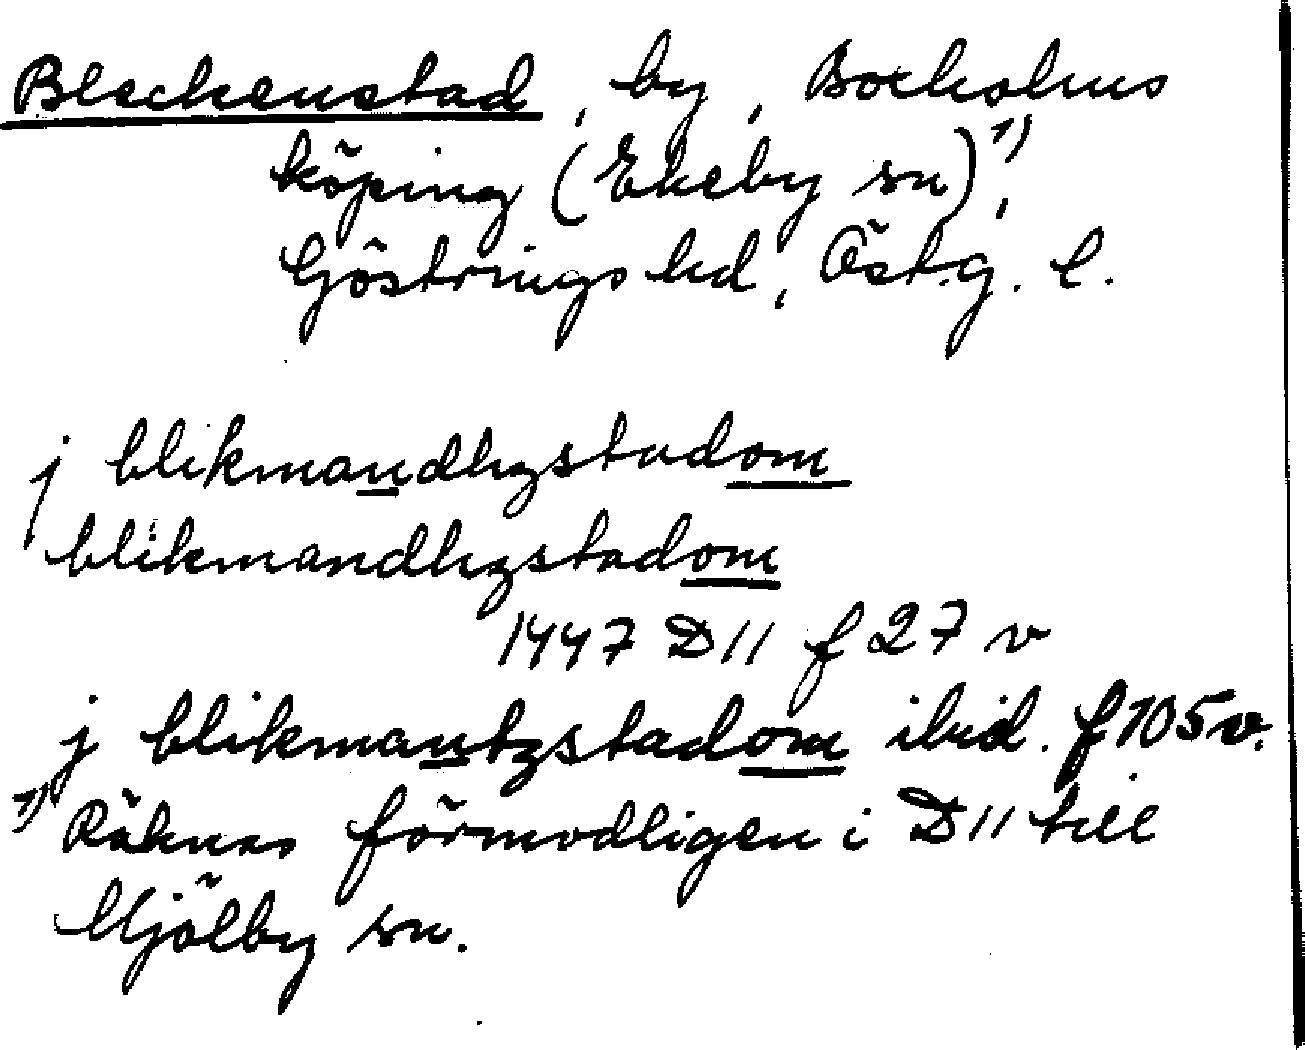 Bleckenstad, by, Boxholms
köping (Ekeby sn)¹⁾,
Göstrings hd, Östg. l.
j blikmandhzstadom
blikmandhzstadom
1447 D11 f 27 v
j blikmantzstadom ibid. f 105 v.
¹⁾ Räknas förmodligen i D11 till
Mjölby sn.